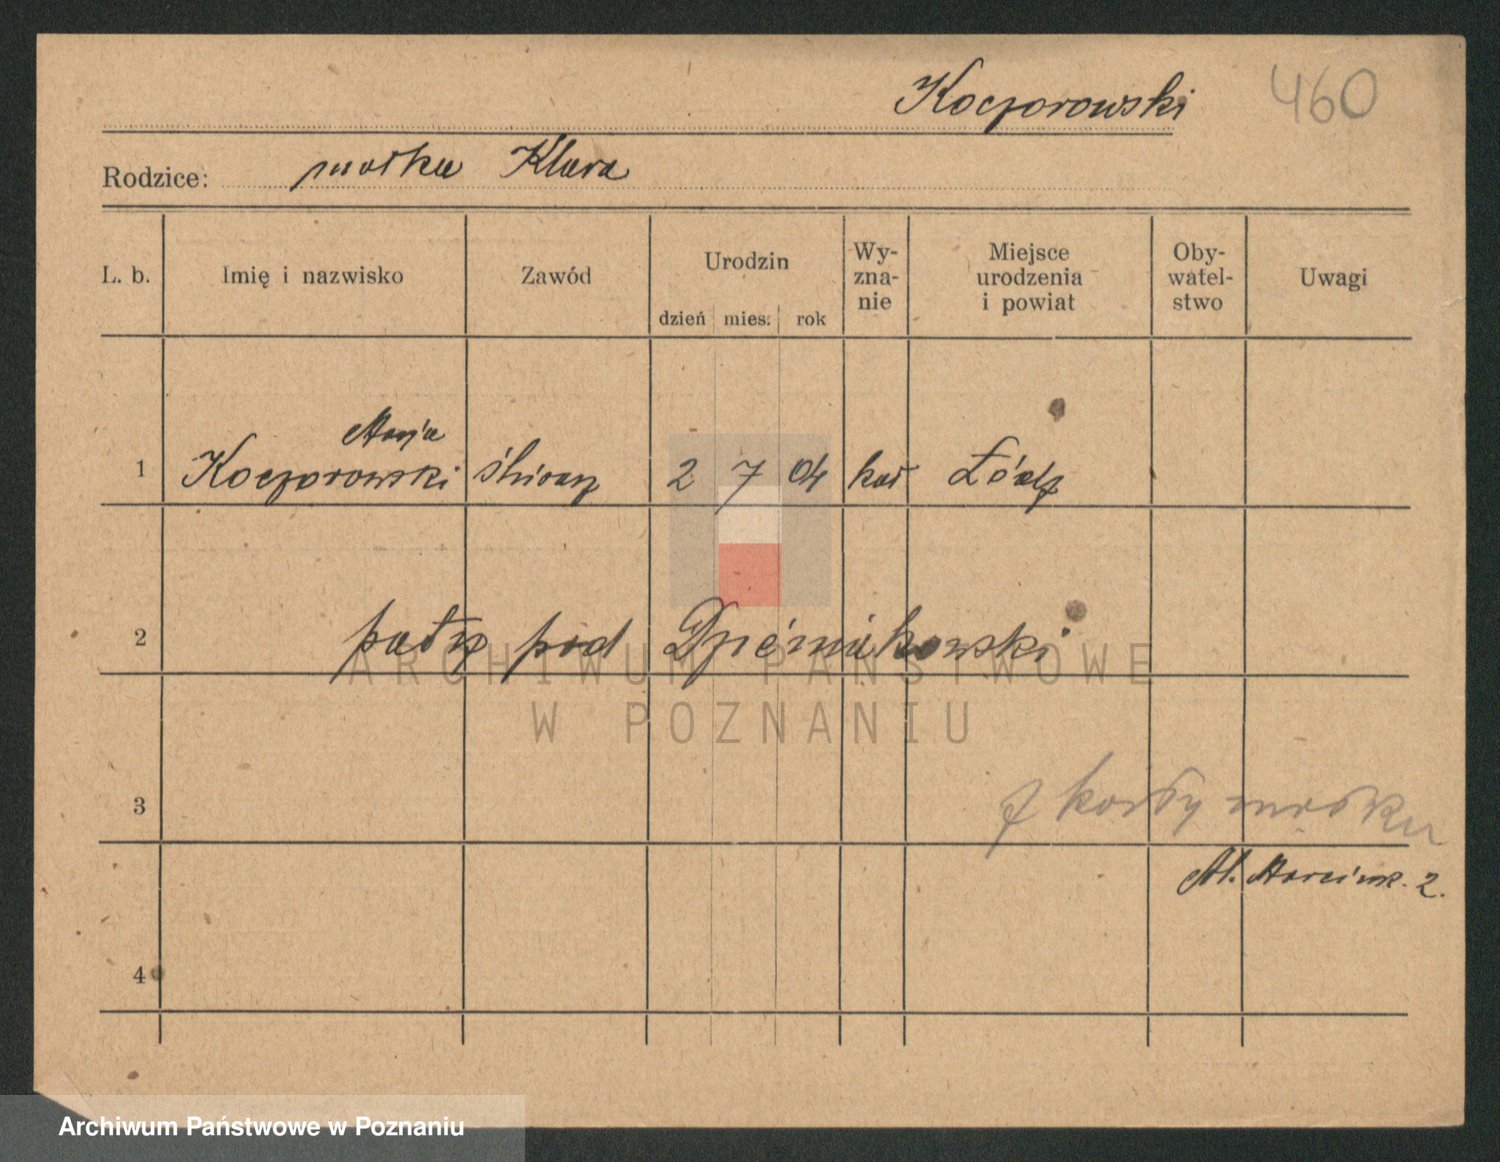 Koczorowski 460
Rodzice: matka Klara
L. b. Imię i nazwisko Zawód Urodzin Wy-zna-nie Miejsce urodzenia i powiat Oby-watel-stwo Uwagi
dzień mies. rok
Marja
1 Koczorowski 2 7 04 kat Łódź
2 patrz pod
ARCHIWUM PAŃSTWOWE
W POZNANIU
3 z karty matki
Al. Marcink. 2.
4
Archiwum Państwowe w Poznaniu